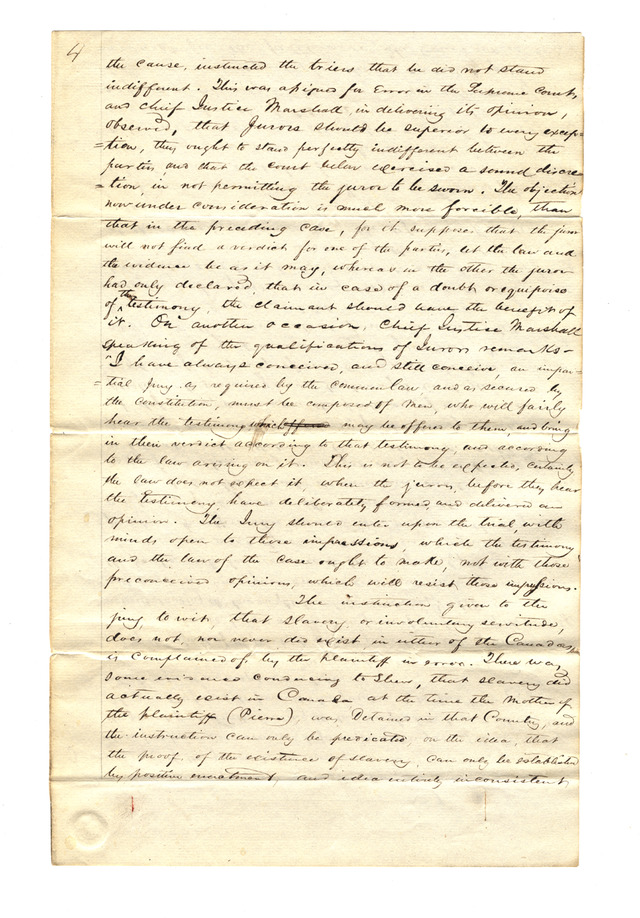 4
the cause, instructed the triers that he did not stand
indifferent. This was assigned for Error in the Supreme Court,
and Chief Justice Marshall, in delivering its opinion,
observed, that Jurors should be superior to every excep-
=tion, they ought to stand perfectly indifferent between the
parties, and that the court below exercised a sound discre
=tion, in not permitting the juror to be sworn. The objection
now under consideration is much more forcible, than
that in the preceding case, for it supposes that the juror
will not find a verdict for one of the parties, let the law and
the evidence be as it may, whereas in the other the juror
had only declared, that in case of a doubt or equipoise
of the testimony, the claimant should have the benefit of
it. On another occasion, Chief Justice Marshall
speaking of the qualifications of Jurors remarks-
"I have always conceived, and still conceive, an impar-
=tial Jury as required by the common law, and as secured by
the Constitution, must be composed of men, who will fairly
hear the testimony which may be offered to them, and bring
in their verdict according to that testimony, and according
to the law arising on it. This is not to be expected, certainly
the law does not expect it, where the jurors, before they hear
the testimony, have deliberately formed, and delivered an
opinion. The Jury should enter upon the trial, with
minds open to those impressions, which the testimony
and the law of the case ought to make, not with those
preconceived opinions, which will resist those impressions.
The instruction given to the
jury, to wit, that slavery or involuntary servitude,
does not, nor never did exist in either of the Canadas,
is complained of by the plaintiff in error. There was
some evidence conducing to Shew, that slavery did
actually exist in Canada at the time the Mother of
the plaintiff (Pierre), was Detained in that Country, and
the instruction can only be predicated on the idea, that
the proof of the existence of slavery, can only be established
by positive enactment, and idea entirely inconsistent